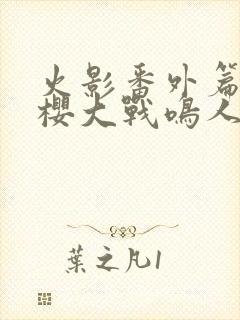 火影番外篇
櫻大戰鳴人
葉之凡1